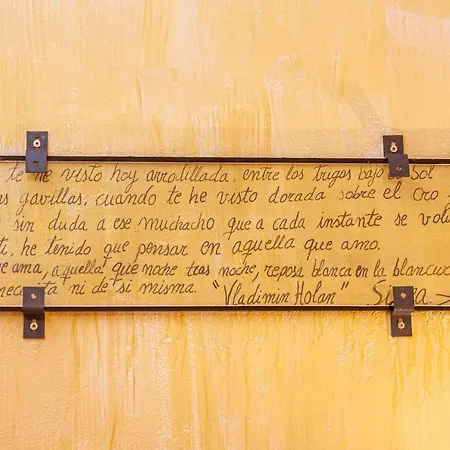 te he visto hoy arrodillada, entre los trigos bajo Sol
gavillas, cuando te he visto dorada sobre el oro
sin duda a ese muchacho que a cada instante se
he tenido que pensar en aquella que amo.
ama, aquella que noche tras noche, reposa blanca en la
ni de si misma. "Vladimin Holan"